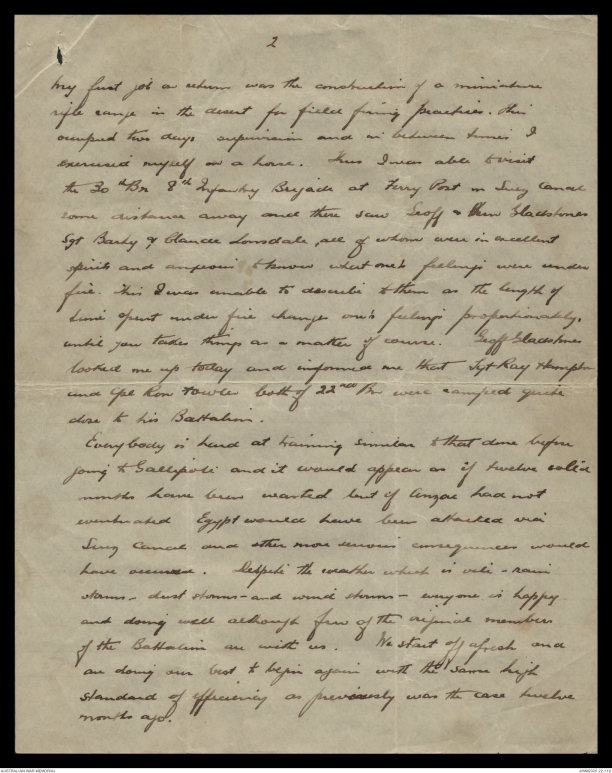 2
My first job on return was the construction of a miniature
rifle range in the desert for field firing practices. This
occupied two days supervision and in between times I
exercised myself on a horse. Thus I was able to visit
the 30th Bn 8th Infantry Brigade at Ferry Post on Suez Canal
some distance away and there saw Geoff & Gladstones
Sgt Barby & Claude Lonsdale, all of whom were in excellent
spirits and anxious to know what one's feelings were under
fire. This I was unable to describe to them as the length of
time spent under fire changes one's feelings proportionately,
until you take things as a matter of course. Geoff Gladstones
looked me up today and informed me that Sgt Ray Hampton
and Cpl Ron Fowler both of 22nd Bn were camped quite
close to his Battalion.
Everybody is hard at training similar to that done before
going to Gallipoli and it would appear as if twelve solid
months have been wasted but if Anzac had not
eventuated Egypt would have been attacked via
Suez Canal and other more serious consequences would
have occurred. Despite the weather which is vile - rain
storms - dust storms - and wind storms - everyone is happy
and doing well although few of the original members
of the Battalion are with us. We start off afresh and
are doing our best to begin again with the same high
standard of efficiency as previously was the case twelve
months ago.
AUSTRALIAN WAR MEMORIAL